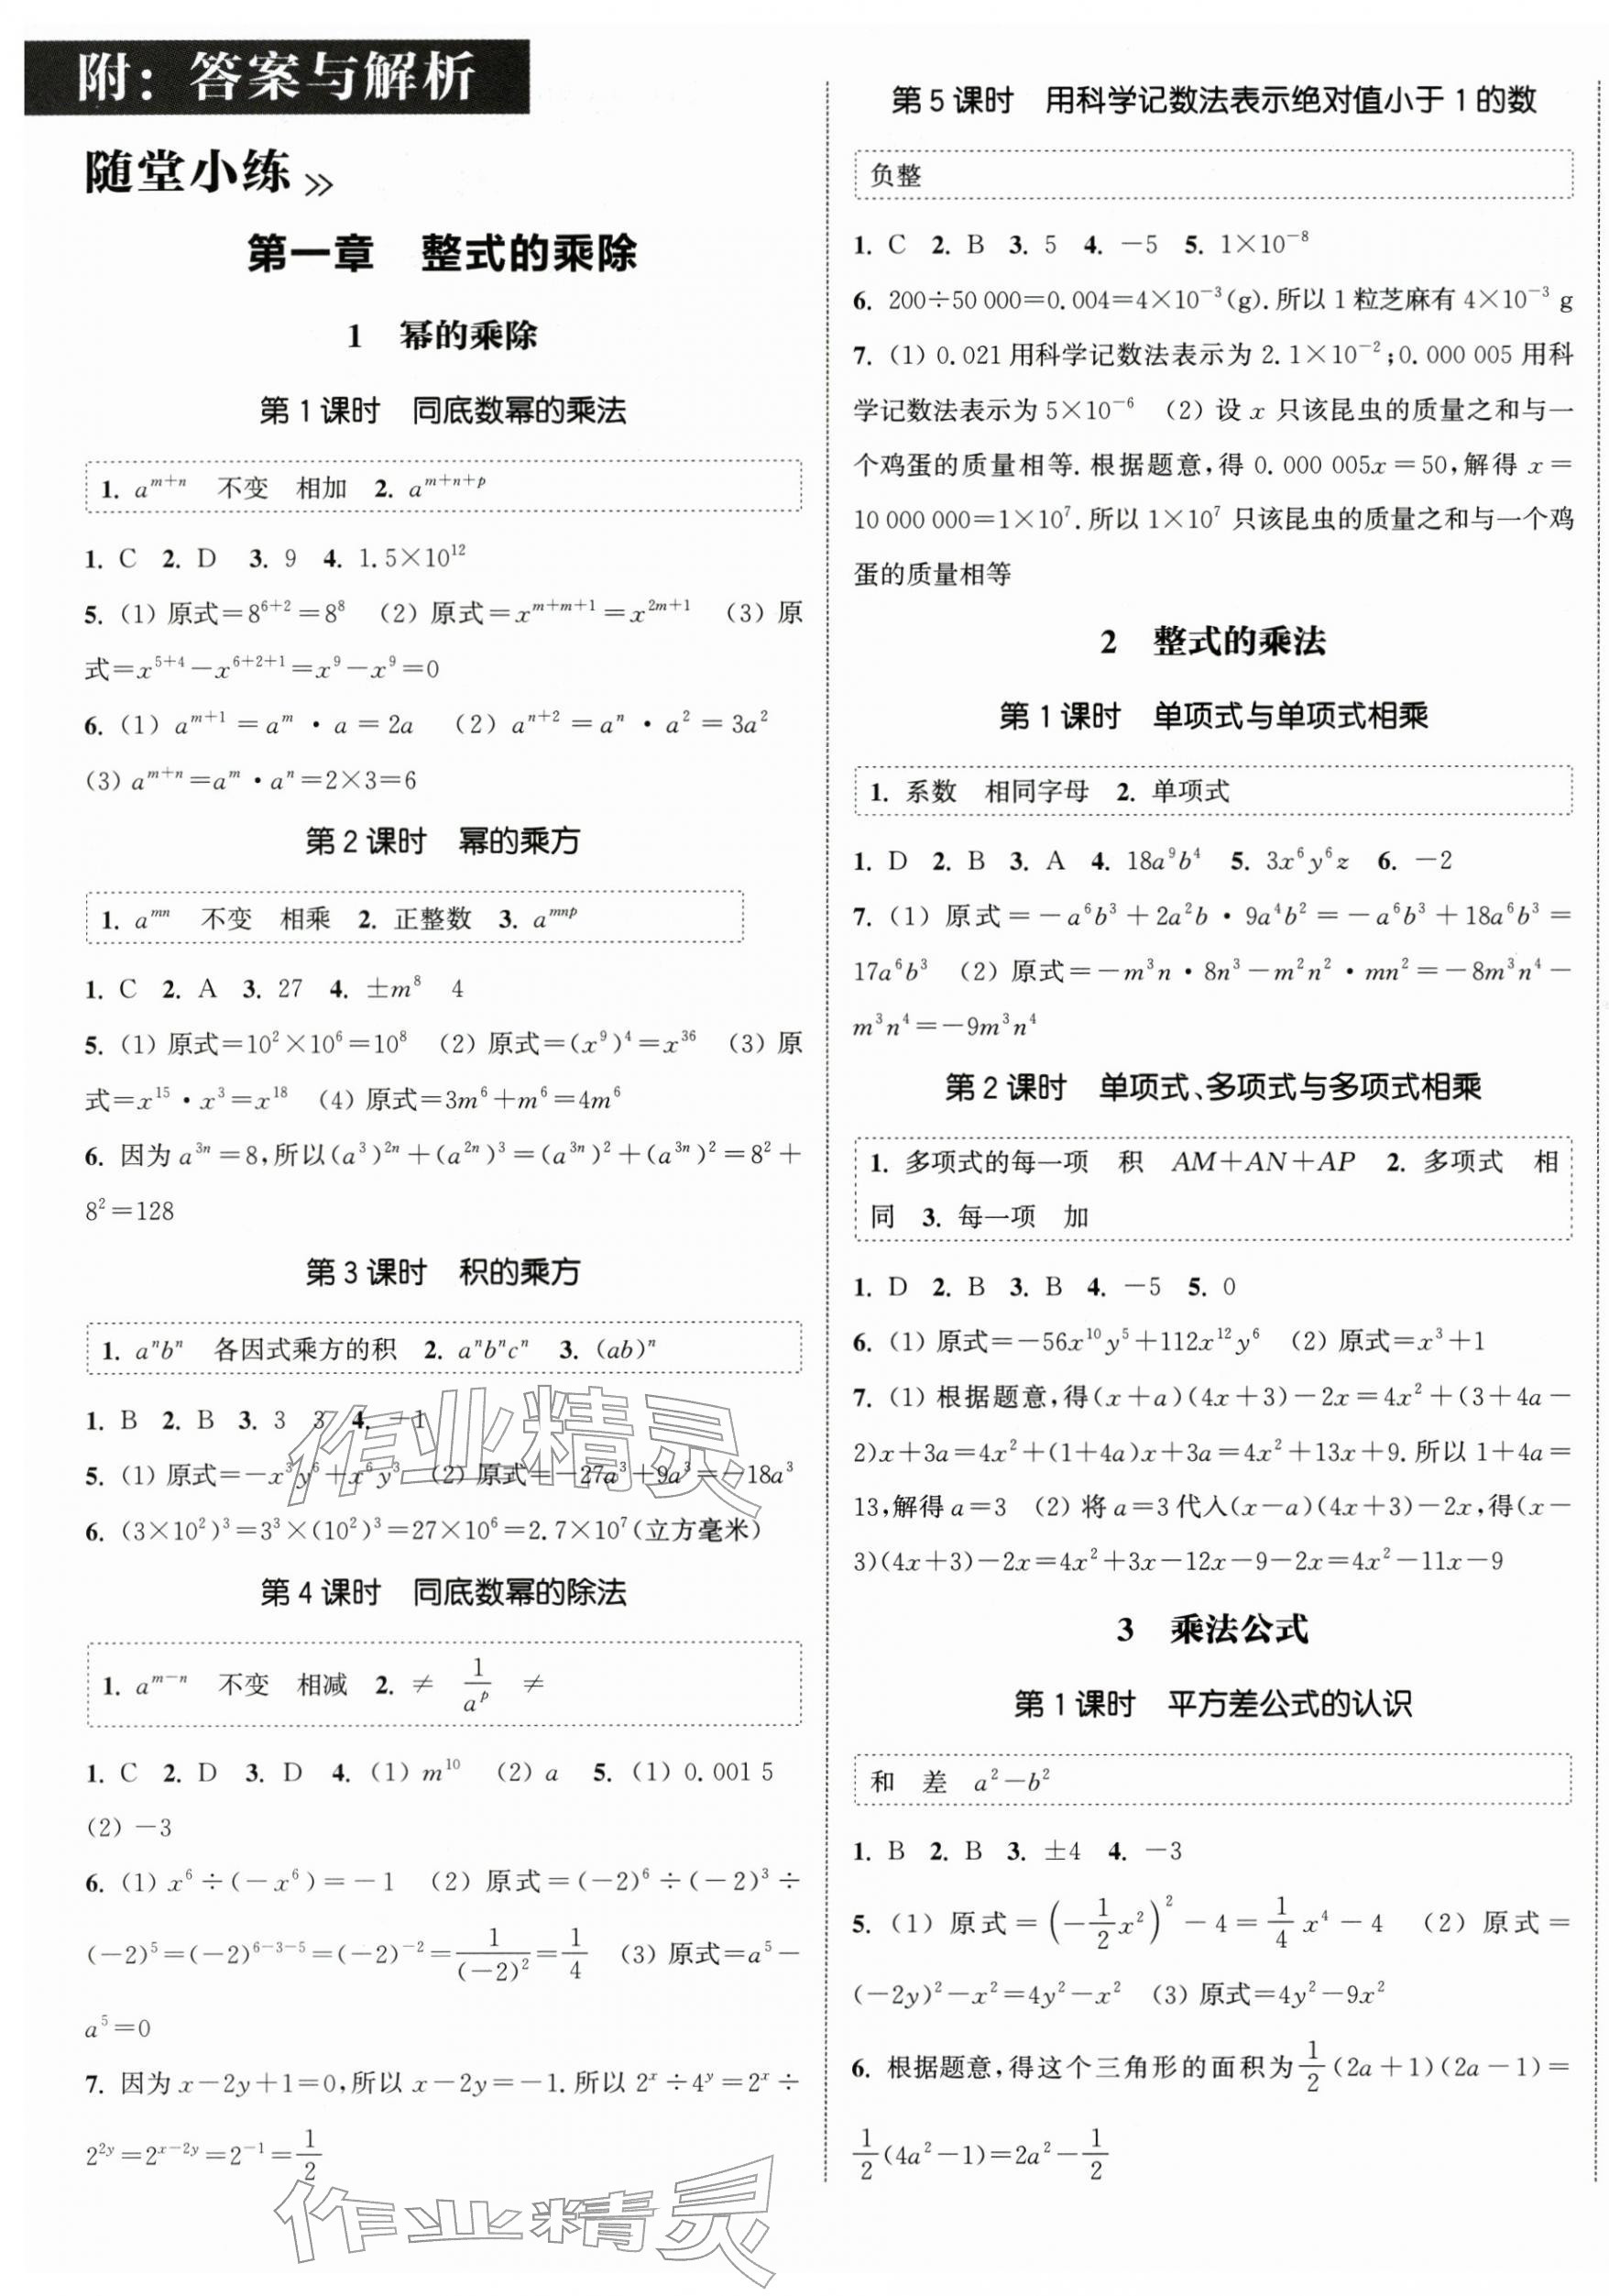 附：答案与解析
随堂小练 >>
第一章　整式的乘除
1　幂的乘除
第 1 课时　同底数幂的乘法
1. a^{m+n}　不变　相加　2. a^{m+n+p}
1. C　2. D　3. 9　4. 1.5×10^{12}
5. (1) 原式=8^{6+2}=8^8　(2) 原式=x^{m+m+1}=x^{2m+1}　(3) 原
式=x^{5+4}-x^{6+2+1}=x^9-x^9=0
6. (1) a^{m+1}=a^m·a=2a　(2) a^{n+2}=a^n·a^2=3a^2
(3) a^{m+n}=a^m·a^n=2×3=6
第 2 课时　幂的乘方
1. a^{mn}　不变　相乘　2. 正整数　3. a^{mnp}
1. C　2. A　3. 27　4. ±m^8　4
5. (1) 原式=10^2×10^6=10^8　(2) 原式=(x^9)^4=x^{36}　(3) 原
式=x^{15}·x^3=x^{18}　(4) 原式=3m^6+m^6=4m^6
6. 因为 a^{3n}=8,所以(a^3)^{2n}+(a^{2n})^3=(a^{3n})^2+(a^{3n})^2=8^2+
8^2=128
第 3 课时　积的乘方
1. a^n b^n　各因式乘方的积　2. a^n b^n c^n　3. (ab)^n
1. B　2. B　3. 3　3　4. -1
5. (1) 原式=-x^3y^6+x^6y^3　(2) 原式=-27a^3+9a^3=-18a^3
6. (3×10^2)^3=3^3×(10^2)^3=27×10^6=2.7×10^7(立方毫米)
第 4 课时　同底数幂的除法
1. a^{m-n}　不变　相减　2. ≠　\frac{1}{a^p}　≠
1. C　2. D　3. D　4. (1) m^{10}　(2) a　5. (1) 0.001 5
(2) -3
6. (1) x^6÷(-x^6)=-1　(2) 原式=(-2)^6÷(-2)^3÷
(-2)^5=(-2)^{6-3-5}=(-2)^{-2}=\frac{1}{(-2)^2}=\frac{1}{4}　(3) 原式=a^5-
a^5=0
7. 因为 x-2y+1=0,所以 x-2y=-1.所以 2^x÷4^y=2^x÷
2^{2y}=2^{x-2y}=2^{-1}=\frac{1}{2}
第 5 课时　用科学记数法表示绝对值小于 1 的数
负整
1. C　2. B　3. 5　4. -5　5. 1×10^{-8}
6. 200÷50 000=0.004=4×10^{-3}(g).所以 1 粒芝麻有 4×10^{-3} g
7. (1) 0.021 用科学记数法表示为 2.1×10^{-2};0.000 005 用科
学记数法表示为 5×10^{-6}　(2) 设 x 只该昆虫的质量之和与一
个鸡蛋的质量相等.根据题意,得 0.000 005x=50,解得 x=
10 000 000=1×10^7.所以 1×10^7 只该昆虫的质量之和与一个鸡
蛋的质量相等
2　整式的乘法
第 1 课时　单项式与单项式相乘
1. 系数　相同字母　2. 单项式
1. D　2. B　3. A　4. 18a^9b^4　5. 3x^6y^6z　6. -2
7. (1) 原式=-a^6b^3+2a^2b·9a^4b^2=-a^6b^3+18a^6b^3=
17a^6b^3　(2) 原式=-m^3n·8n^3-m^2n^2·mn^2=-8m^3n^4-
m^3n^4=-9m^3n^4
第 2 课时　单项式、多项式与多项式相乘
1. 多项式的每一项　积　AM+AN+AP　2. 多项式　相
同　3. 每一项　加
1. D　2. B　3. B　4. -5　5. 0
6. (1) 原式=-56x^{10}y^5+112x^{12}y^6　(2) 原式=x^3+1
7. (1) 根据题意,得(x+a)(4x+3)-2x=4x^2+(3+4a-
2)x+3a=4x^2+(1+4a)x+3a=4x^2+13x+9.所以 1+4a=
13,解得 a=3　(2) 将 a=3 代入(x-a)(4x+3)-2x,得(x-
3)(4x+3)-2x=4x^2+3x-12x-9-2x=4x^2-11x-9
3　乘法公式
第 1 课时　平方差公式的认识
和　差　a^2-b^2
1. B　2. B　3. ±4　4. -3
5. (1) 原式=(-\frac{1}{2}x^2)^2-4=\frac{1}{4}x^4-4　(2) 原式=
(-2y)^2-x^2=4y^2-x^2　(3) 原式=4y^2-9x^2
6. 根据题意,得这个三角形的面积为\frac{1}{2}(2a+1)(2a-1)=
\frac{1}{2}(4a^2-1)=2a^2-\frac{1}{2}
作业精灵
作业精灵